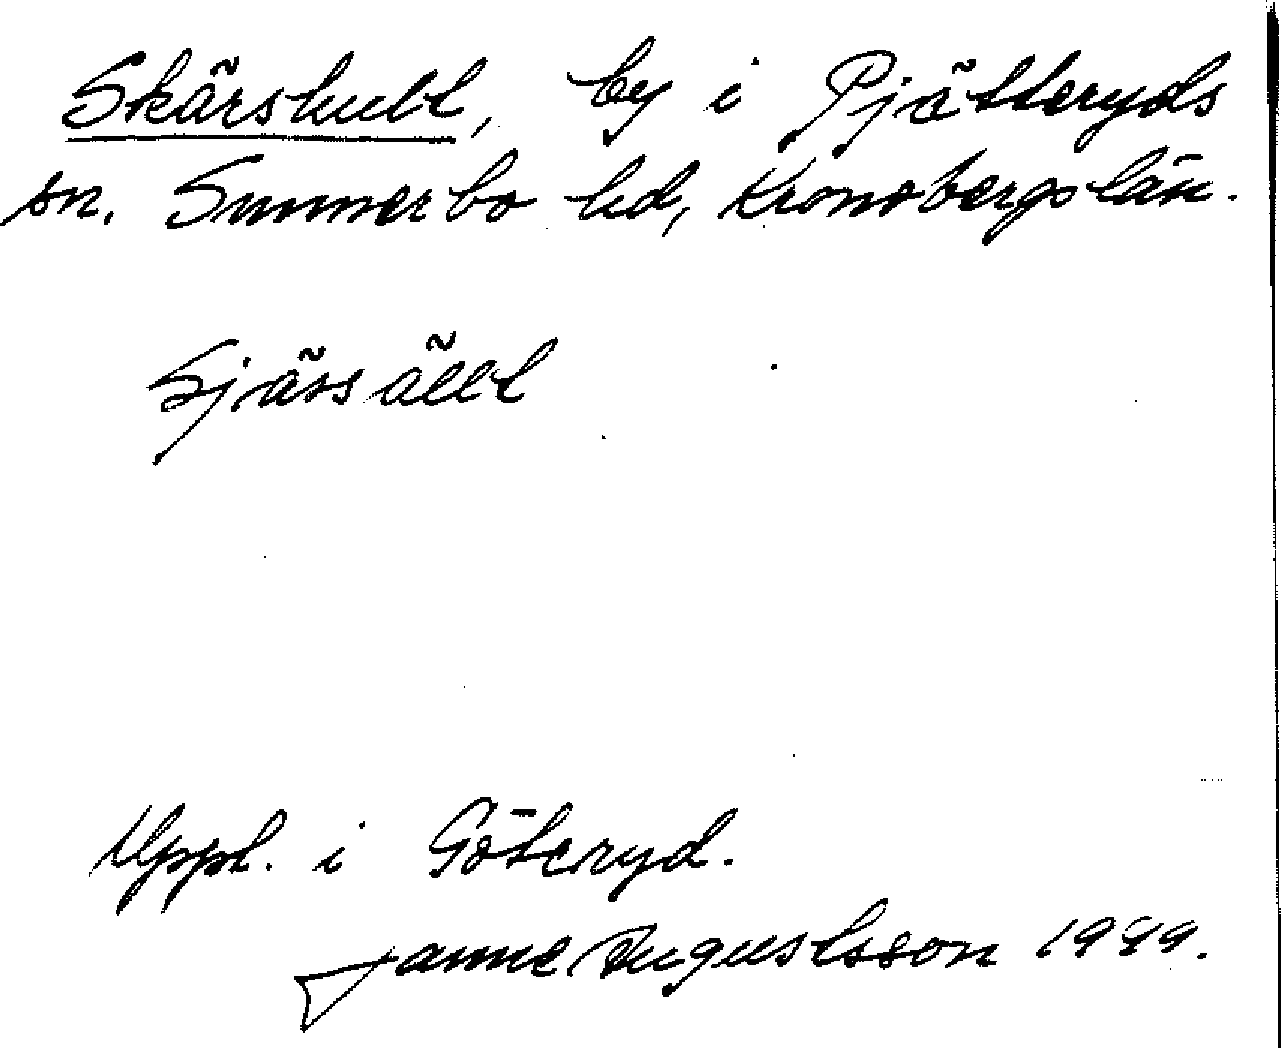 Skärshult, by i Pjätteryds
sn. Sunnerbo hd, Kronobergs län.
Sjässällt
Uppl. i Göteryd.
Janne Augustsson 1949.